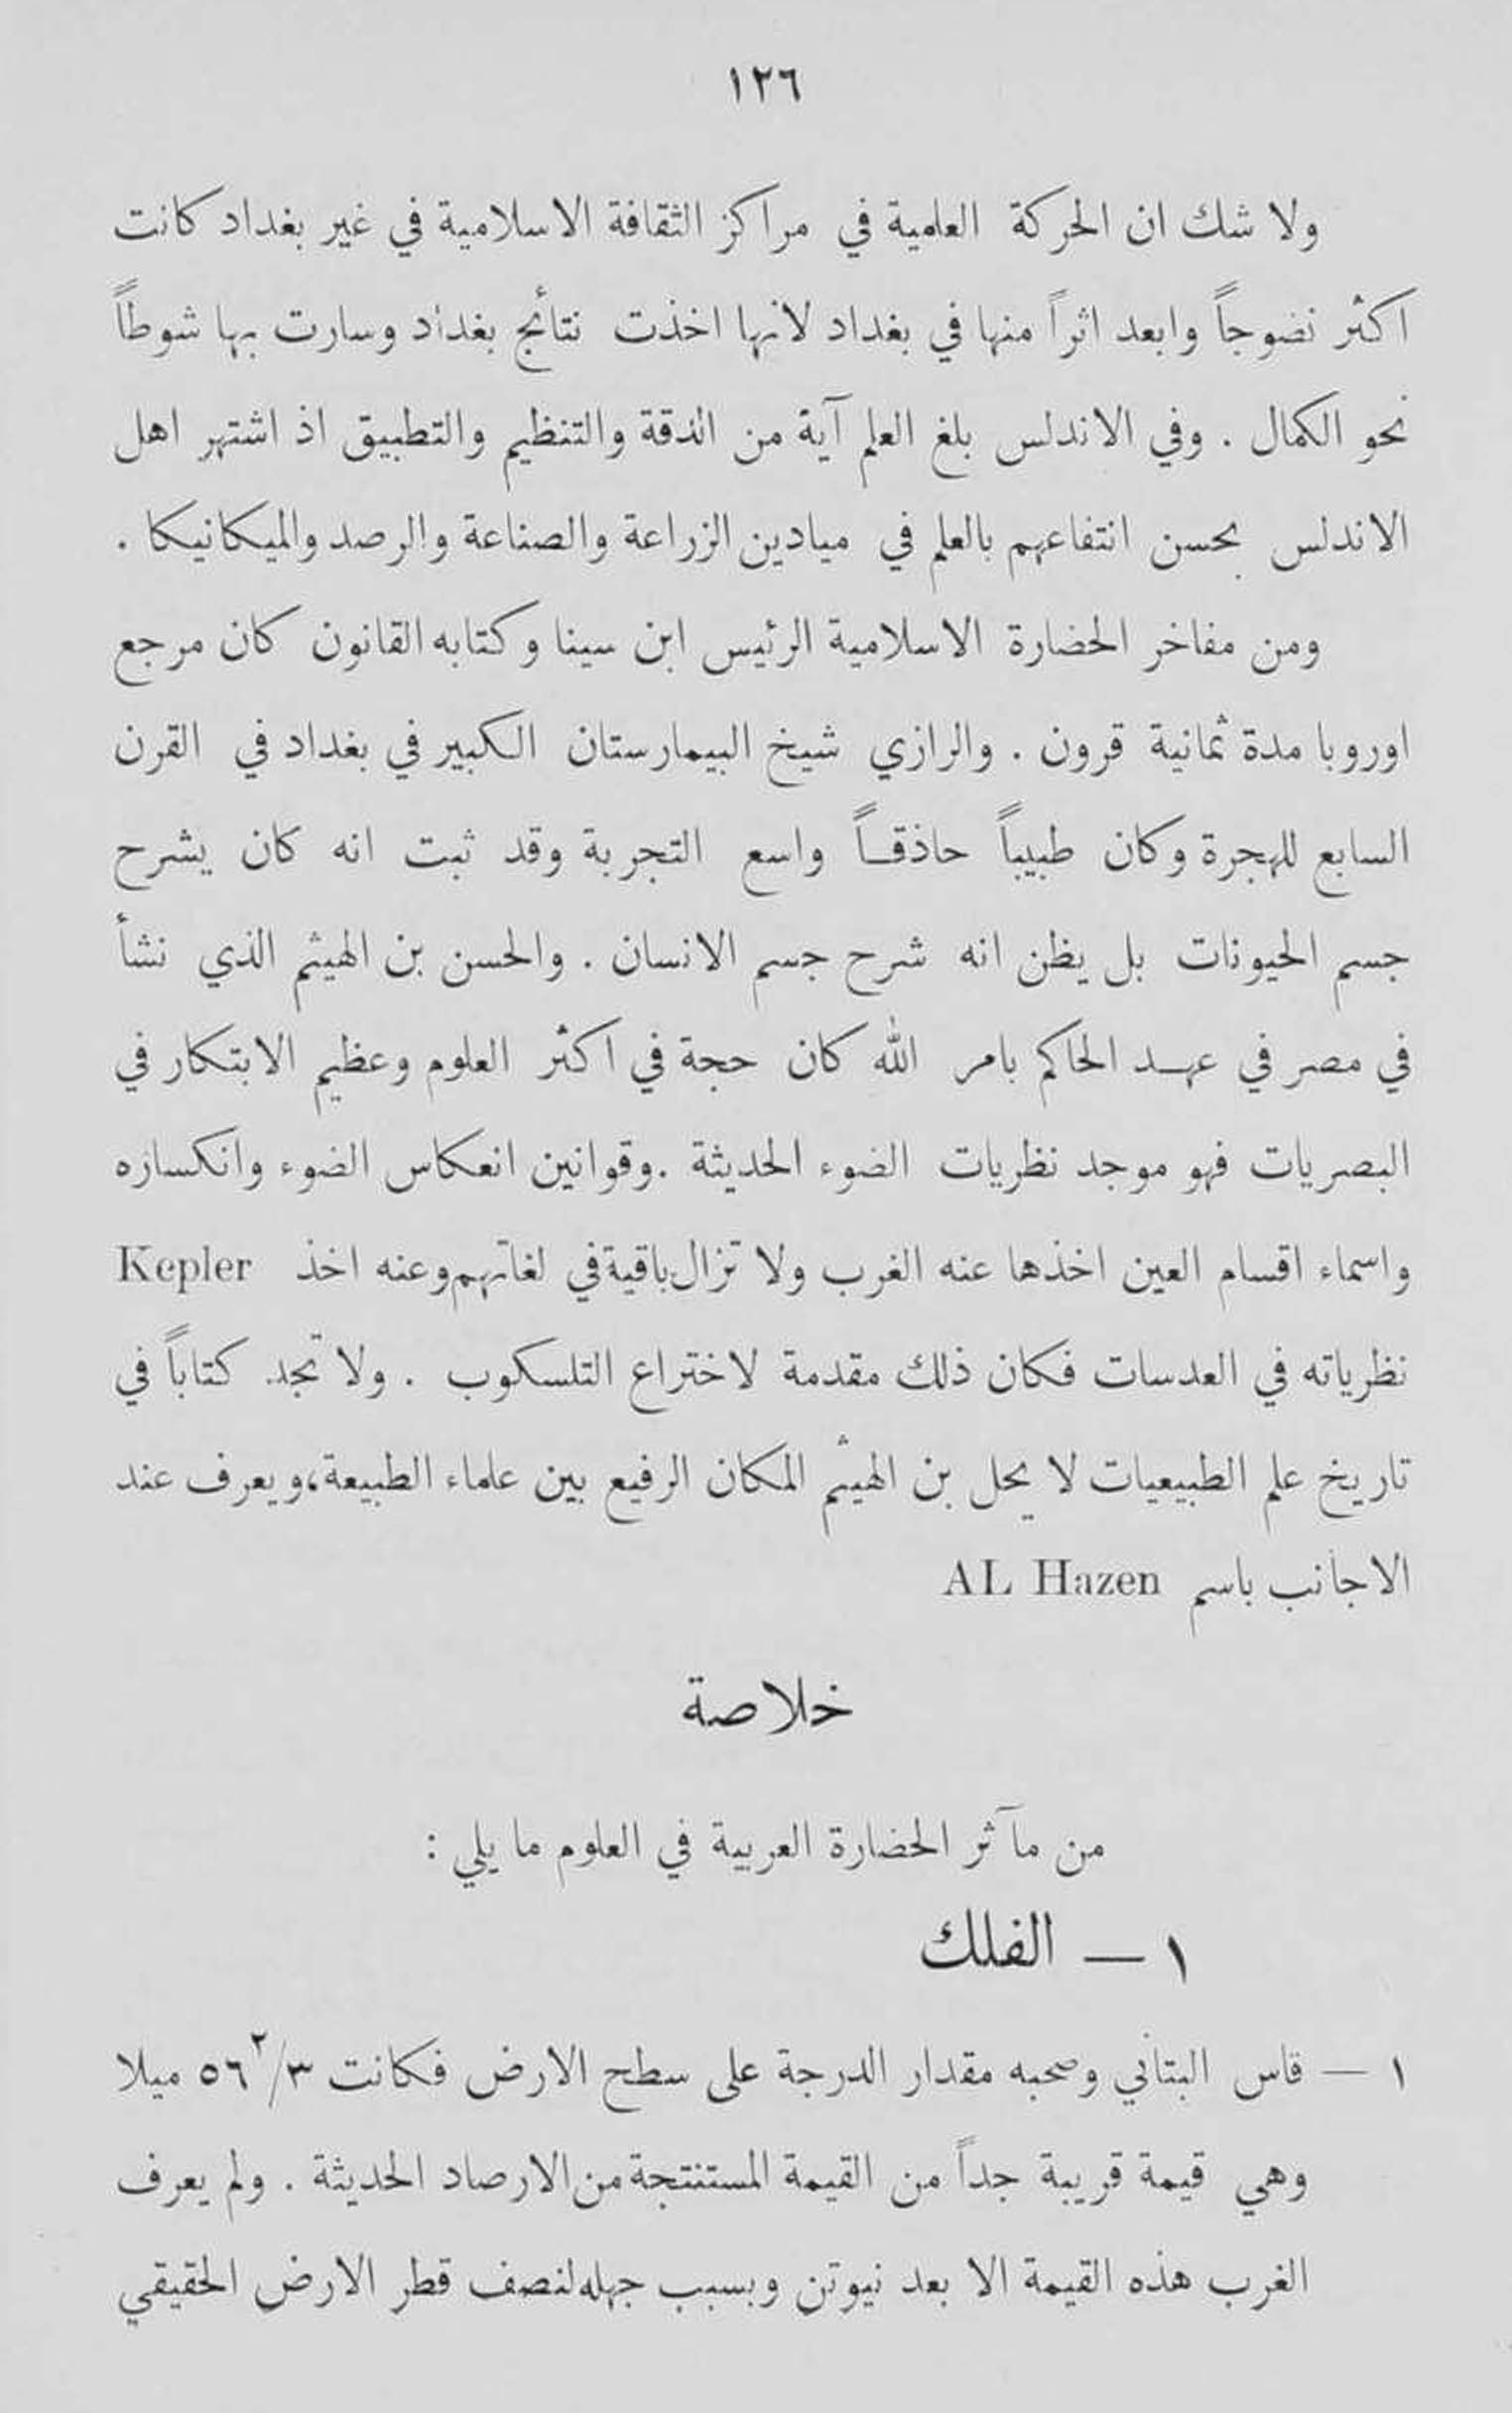 ١٢٦
ولا شك ان الحركة العلمية في مراكز الثقافة الاسلامية في غير بغداد كانت
اكثر نضوجاً وابعد اثراً منها في بغداد لانها اخذت نتائج بغداد وسارت بها شوطاً
نحو الكمال . وفي الاندلس بلغ العلم آية من الدقة والتنظيم والتطبيق اذ اشتهر اهل
الاندلس بحسن انتفاعهم بالعلم في ميادين الزراعة والصناعة والرصد والميكانيكا .
ومن مفاخر الحضارة الاسلامية الرئيس ابن سينا وكتابه القانون كان مرجع
اوروبا مدة ثمانية قرون . والرازي شيخ البيمارستان الكبير في بغداد في القرن
السابع للهجرة وكان طبيباً حاذقـاً واسع التجربة وقد ثبت انه كان يشرح
جسم الحيونات بل يظن انه شرح جسم الانسان . والحسن بن الهيثم الذي نشأ
في مصر في عهـد الحاكم بامر الله كان حجة في اكثر العلوم وعظيم الابتكار في
البصريات فهو موجد نظريات الضوء الحديثة .وقوانين انعكاس الضوء وانكساره
واسماء اقسام العين اخذها عنه الغرب ولا تزال باقية في لغاتهم وعنه اخذ Kepler
نظرياته في العدسات فكان ذلك مقدمة لاختراع التلسكوب . ولا تجد كتاباً في
تاريخ علم الطبيعيات لا يحل بن الهيثم المكان الرفيع بين علماء الطبيعة، ويعرف عند
الاجانب باسم AL Hazen
خلاصة
من مآثر الحضارة العربية في العلوم ما يلي :
١ — الفلك
١ — قاس البتاني وصحبه مقدار الدرجة على سطح الارض فكانت ٥٦٢/٣ ميلا
وهي قيمة قريبة جداً من القيمة المستنتجة من الارصاد الحديثة . ولم يعرف
الغرب هذه القيمة الا بعد نيوتن وبسبب جهله لنصف قطر الارض الحقيقي